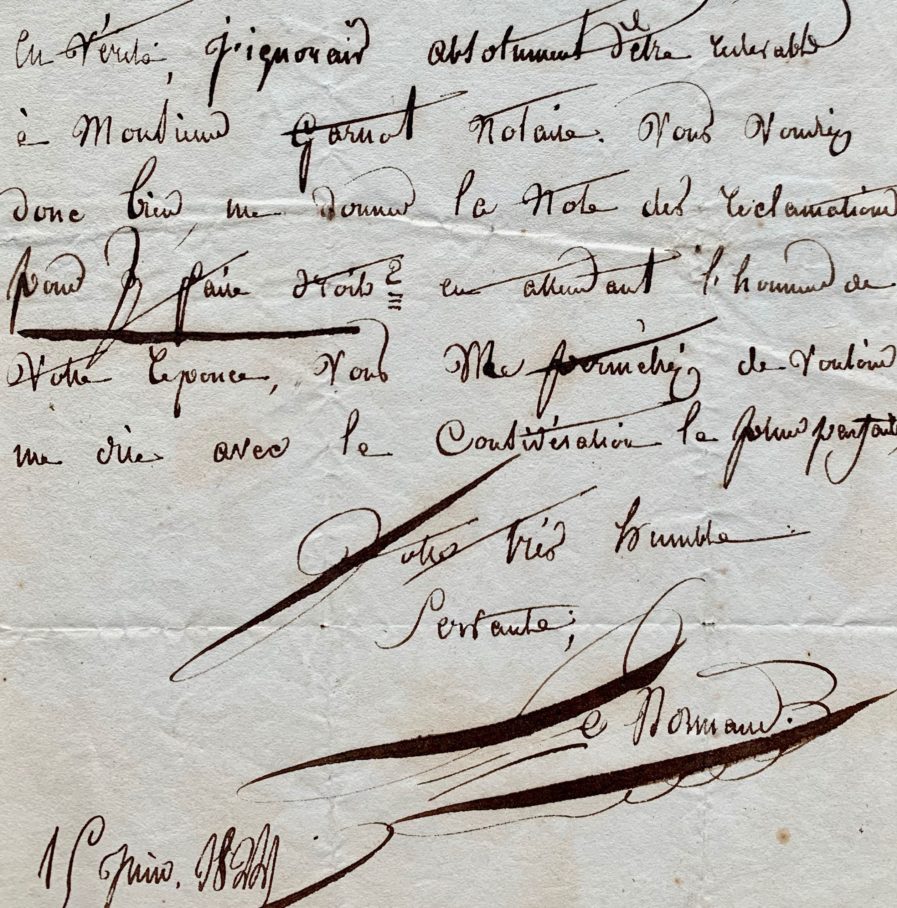 en vérité, j'ignorais absolument d'être redevable
à Monsieur Garnot Notaire. Vous voudrez
donc bien me donner la Note des reclamations
pour y faire droit; en attendant l'honneur de
votre reponce, vous me permetréz de vouloir
me dire avec la Considération la plus parfaite,
Votre très humble
Servante,
Le Normand.
15 Juin. 1822